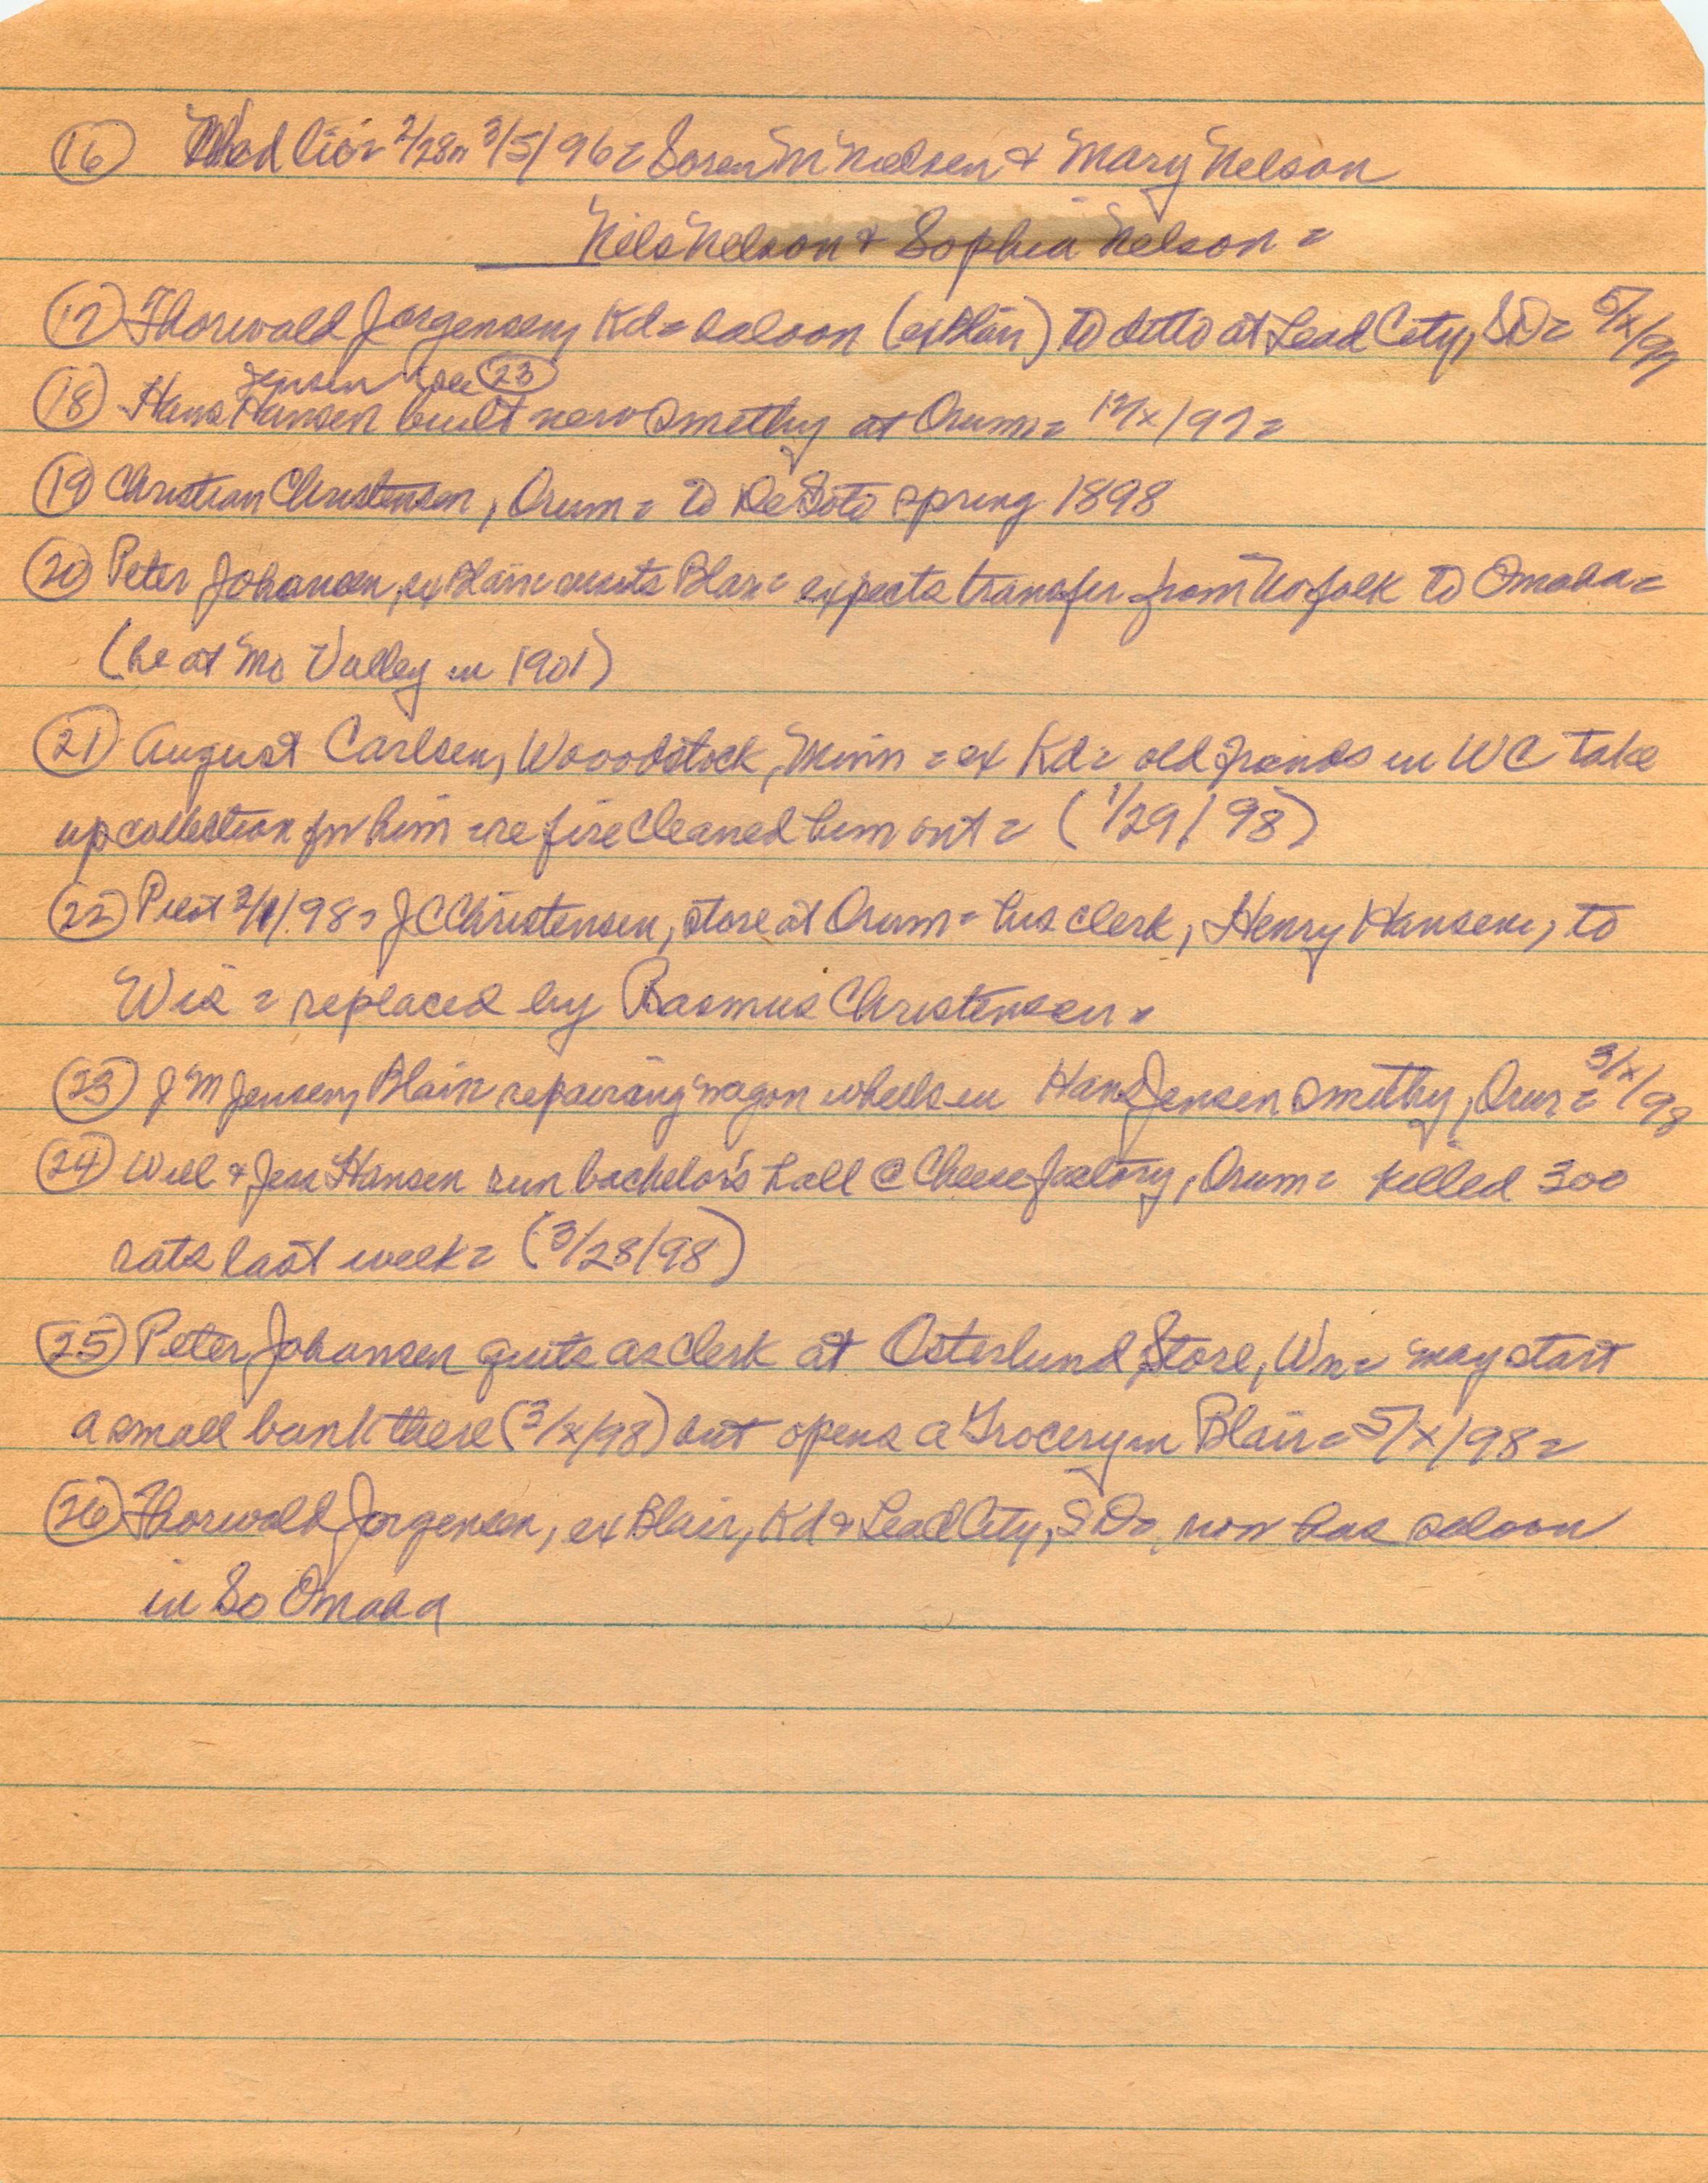 (16) Wed lic = 2/28 n 3/5/96 = Soren M Nielsen & Mary Nelson
Nels Nelson & Sophia Nelson =
(17) Thorwald Jorgensen, Kd = saloon (ex Blair) to ditto at Lead City, SD = 5/x/97
Jensen (see (23)
(18) Hans Hansen built new smithy at Orum = 12/x/97 =
(19) Christian Christensen, Orum = to DeSoto spring 1898
(20) Peter Johansen, ex Blair visits Blair = expects transfer from Norfolk to Omaha =
(he at Mo Valley in 1901)
(21) August Carlsen, Wooodstock, Minn = ex Kd = old friends in WC take
up collection for him = re fire cleaned him out = (1/29/98)
(22) Pilot 2/1/98 = J C Christensen, store at Orum = his clerk, Henry Hansen, to
Wis = replaced by Rasmus Christensen =
(23) J M Jensen, Blair repairing wagon wheels in Hans Jensen smithy, Orum = 3/x/98
(24) Will & Jens Hansen run bachelor's hall @ Cheese factory, Orum = killed 300
rats last week = (3/28/98)
(25) Peter Johansen quits as clerk at Osterlund Store, Wn = may start
a small bank there (3/x/98) but opens a Grocery in Blair = 5/x/98 =
(26) Thorwald Jorgensen, ex Blair, Kd & Lead City, SD = now has saloon
in So Omaha